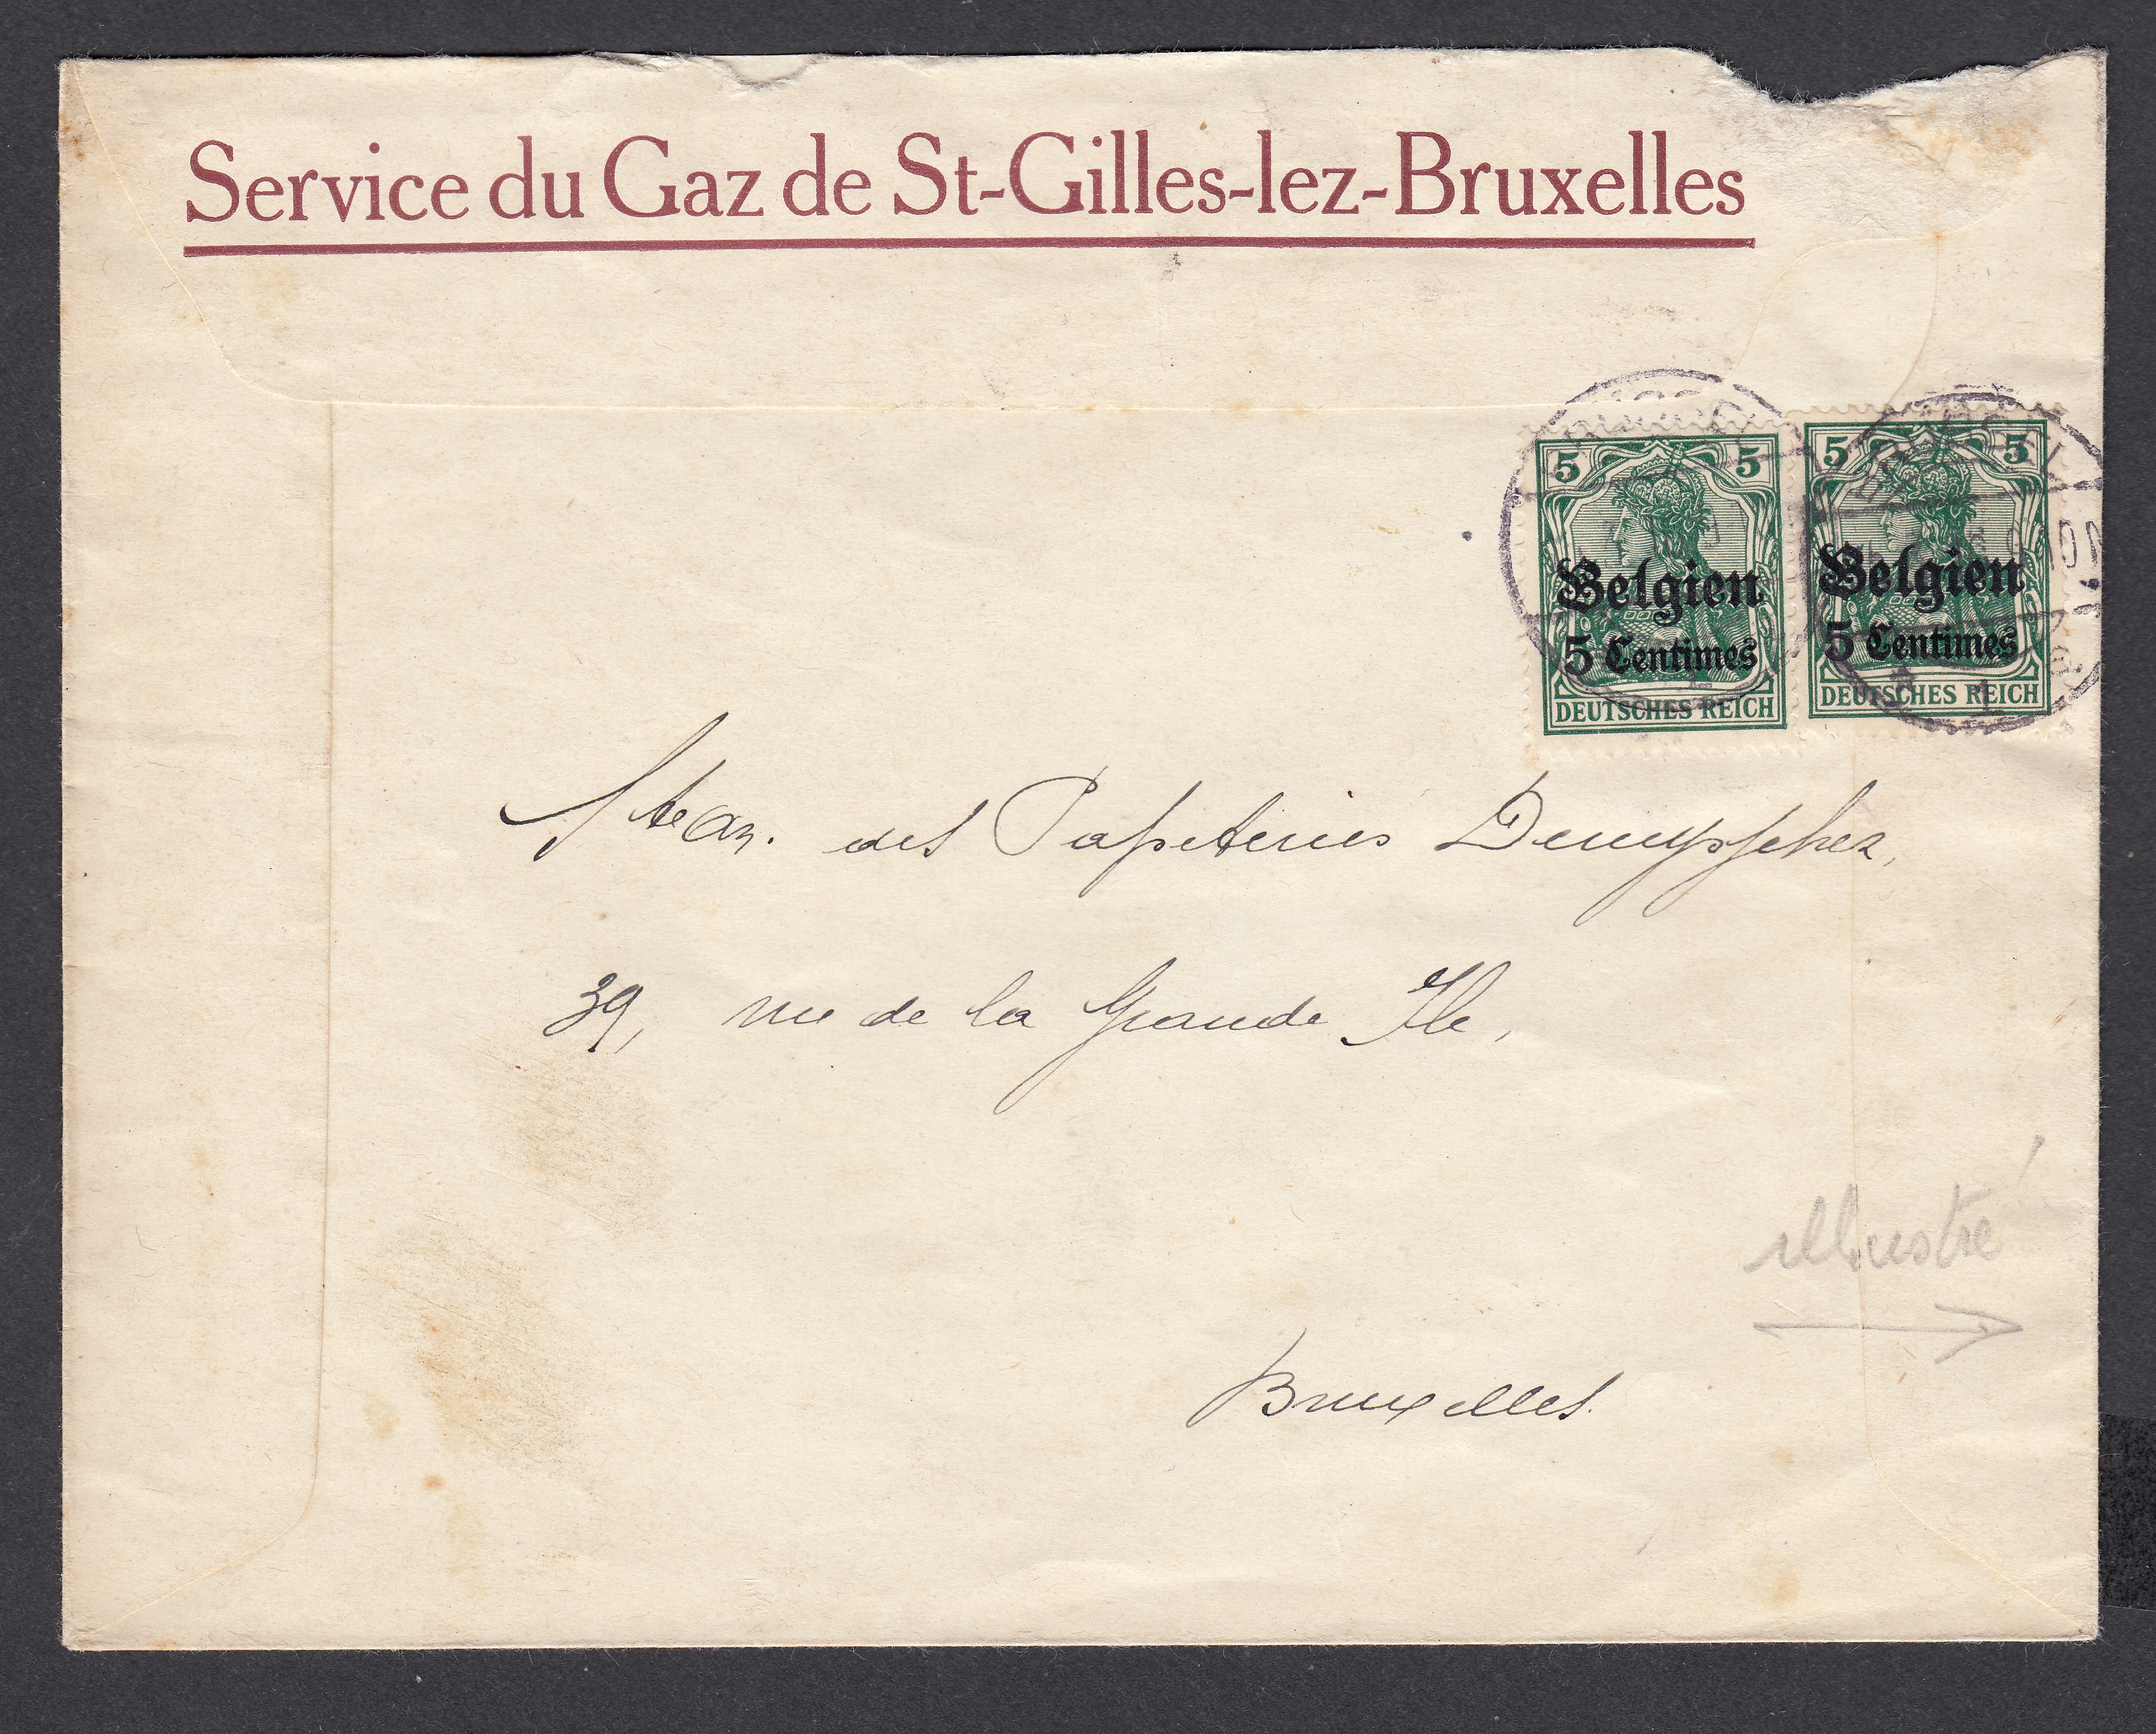 Service du Gaz de St-Gilles-lez-Bruxelles
5 5
Belgien
5 Centimes
DEUTSCHES REICH
5 5
Belgien
5 Centimes
DEUTSCHES REICH
Ste an. des Papeteries
39, rue de la Grande Ile,
illustré
Bruxelles.